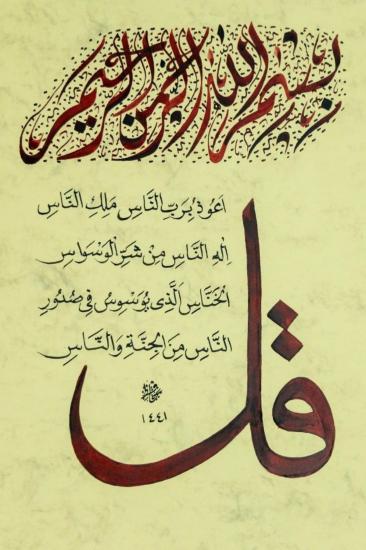 بسم الله الرحمن الرحيم
قل
اعوذ برب الناس ملك الناس
اله الناس من شر الوسواس
الخناس الذي يوسوس في صدور
الناس من الجنة والناس
١٤٤١